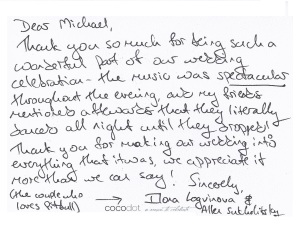 Dear Michael,
Thank you so much for being such a
wonderful part of our wedding
celebration - the music was spectacular
throughout the evening, and my friends
mentioned afterwards that they literally
danced all night until they dropped!
Thank you for making our wedding into
everything that it was, we appreciate it
more than we can say! Sincerely,
(the woman who → Ilona Loginova &
loves Pitbull) cocodot